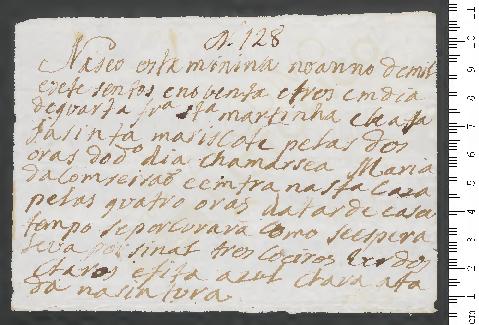 N. 128
Naseo esta minina no anno de mil
e sete sentos e nobenta e tres em dia
de quarta frª sta martinha e
Jasinta mariscote pelas dos
oras do dº dia chamarsea Maria
da Comseisaõ e emtra nasta Caza
pelas quatro oras da tarde e aseu
tempo se porcurara Como se espera
leva por sinal tres Coeiros dos
Claros e fita azul Clara ata
da na sintura